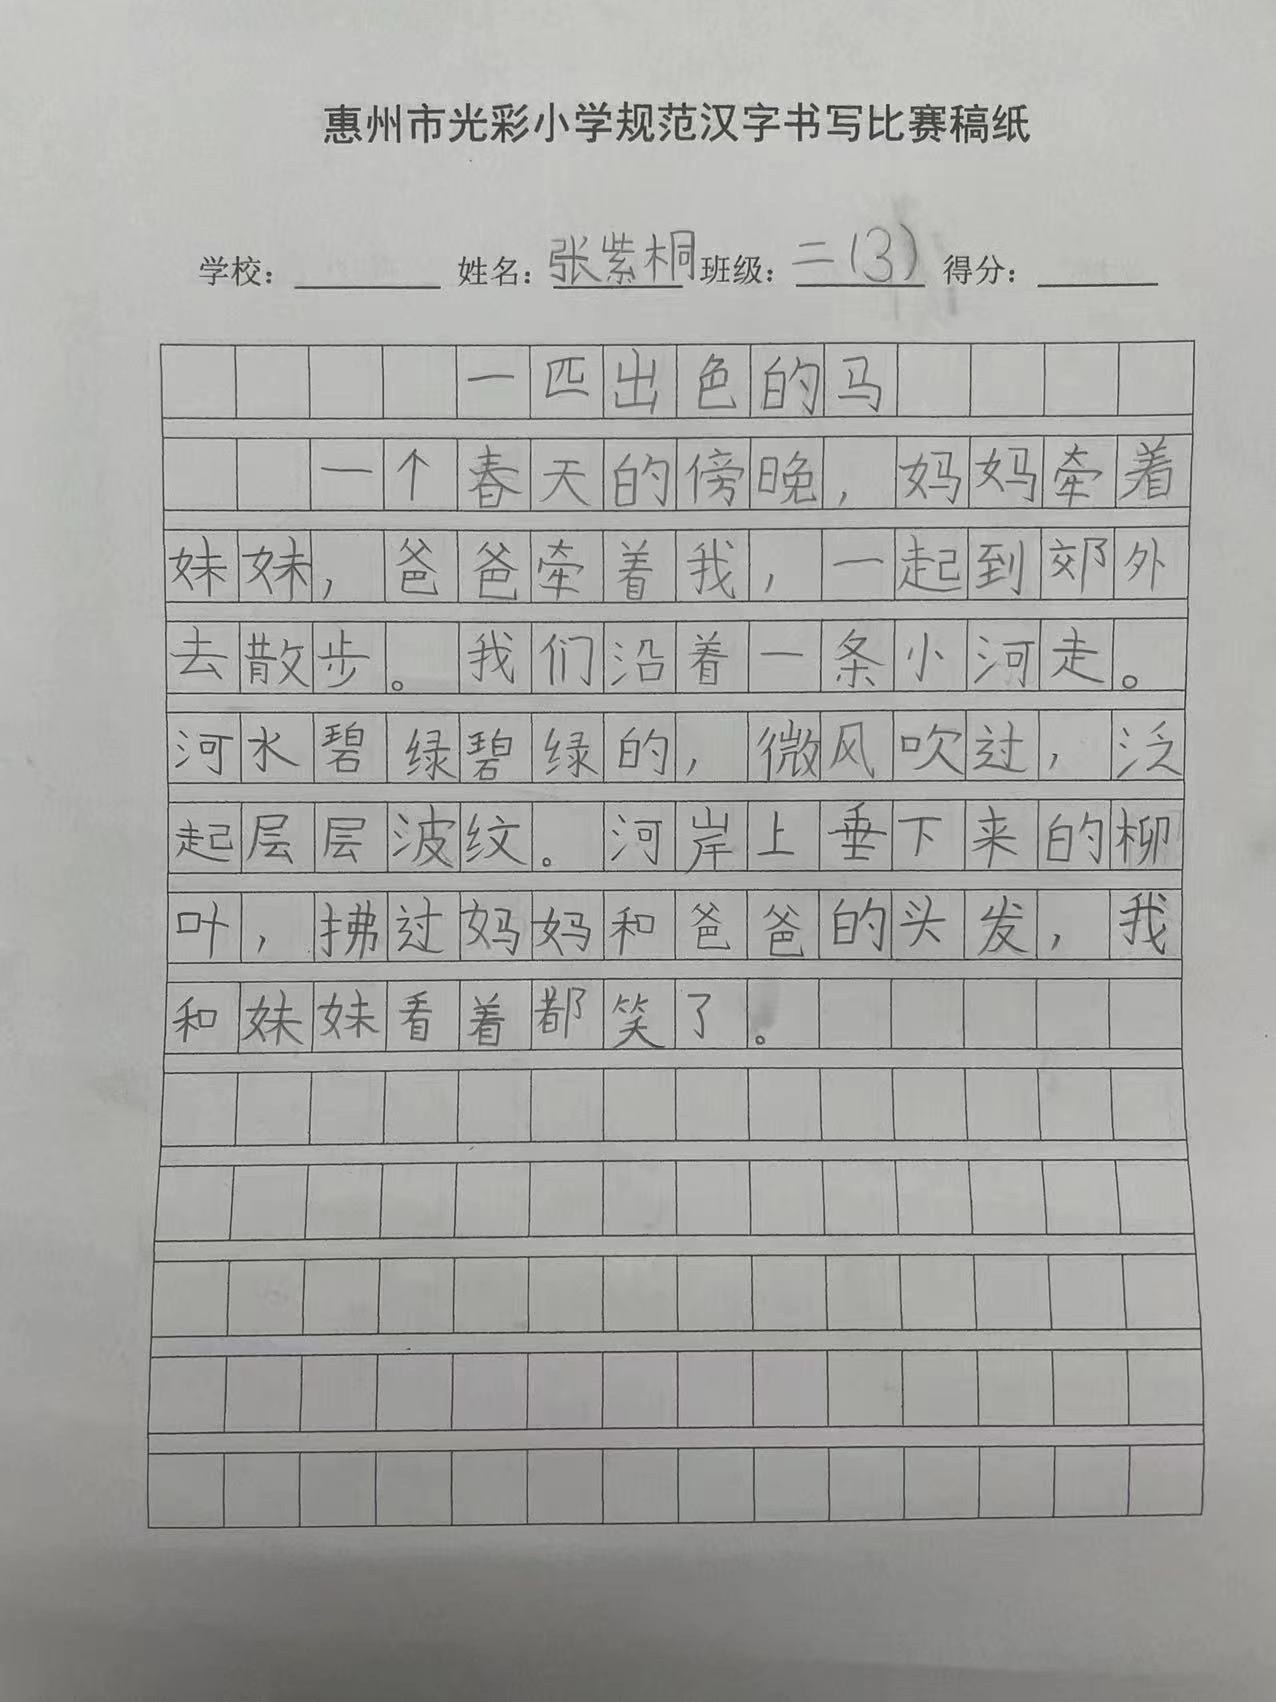 惠州市光彩小学规范汉字书写比赛稿纸
学校： 姓名：张紫桐 班级：二(3) 得分：
一匹出色的马
一个春天的傍晚，妈妈牵着
妹妹，爸爸牵着我，一起到郊外
去散步。我们沿着一条小河走。
河水碧绿碧绿的，微风吹过，泛
起层层波纹。河岸上垂下来的柳
叶，拂过妈妈和爸爸的头发，我
和妹妹看着都笑了。